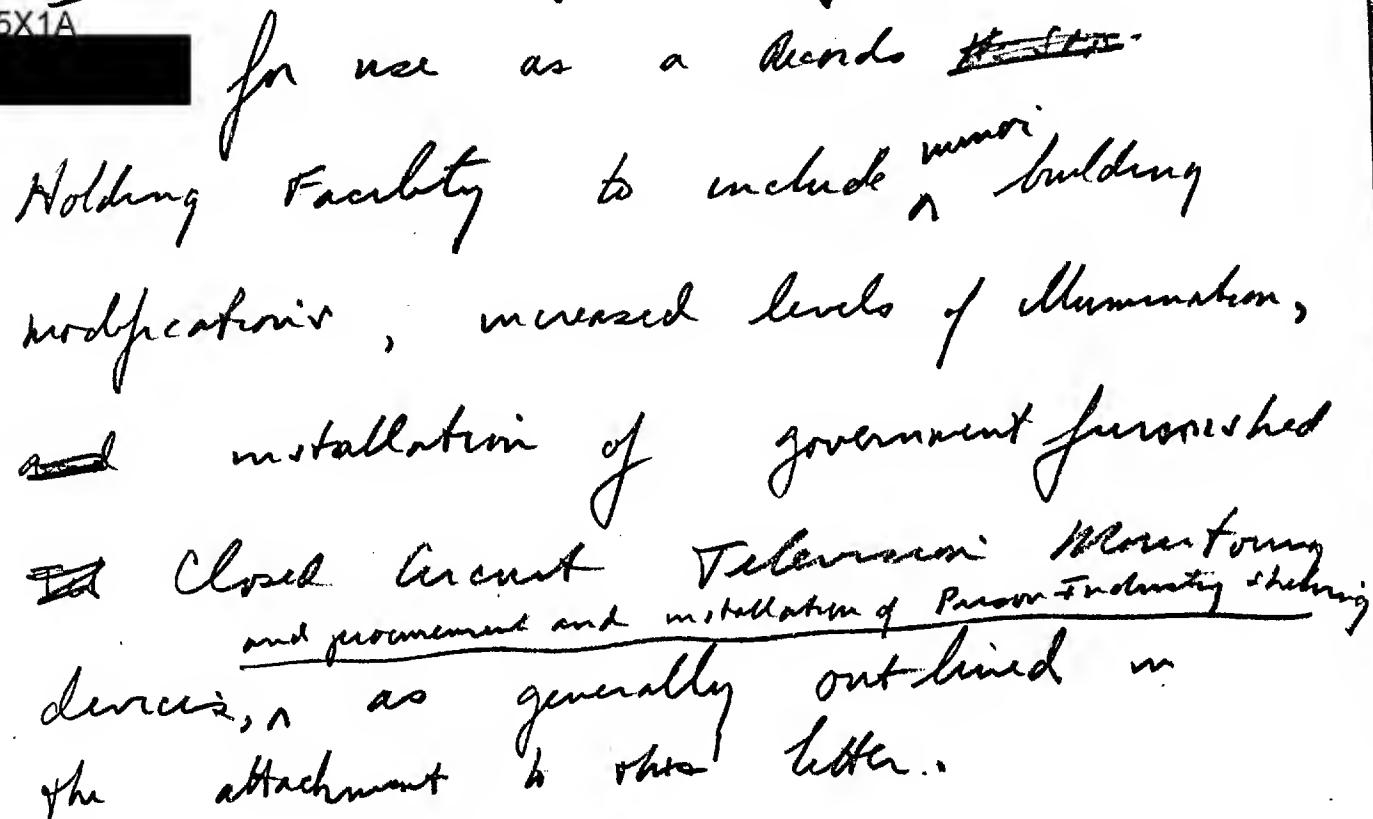 5X1A
for use as a Records
Holding Facility to include minor building
modifications, increased levels of illumination,
and installation of government furnished
Closed Circuit Television Monitoring
and procurement and installation of Prison-Industry shelving
devices, as generally outlined in
the attachment to this letter.